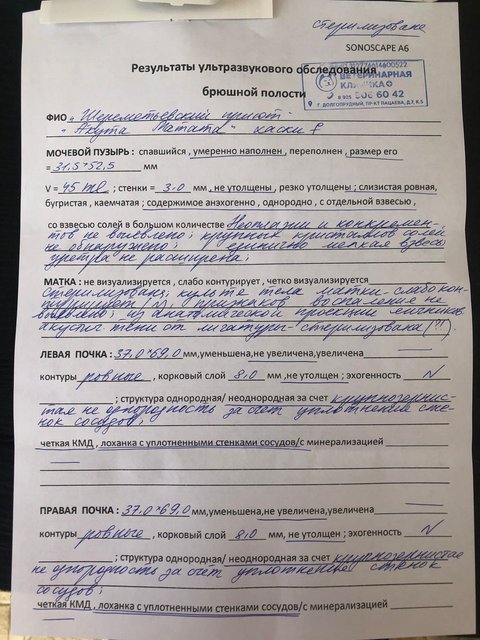 стерилизована
SONOSCAPE A6
Результаты ультразвукового обследования
брюшной полости
ВЕТЕРИНАРНАЯ
КЛИНИКА
8 925 506 60 42
Г. ДОЛГОПРУДНЫЙ, ПР-КТ ПАЦАЕВА, Д.7, К.5
ФИО „Шереметьевский приют"
"Акута Матата" хаски f
МОЧЕВОЙ ПУЗЫРЬ : спавшийся , умеренно наполнен , переполнен , размер его
= 31,5*52,5 мм
V = 45 ml ; стенки = 3.0 мм , не утолщены , резко утолщены ; слизистая ровная,
бугристая , каемчатая ; содержимое анэхогенно , однородно , с отдельной взвесью ,
со взвесью солей в большом количестве Неоплазии и конкремен-
тов не выявлено; крупных кристаллов солей
не обнаружено; единично мелкая взвесь
уретра не расширена;
МАТКА : не визуализируется , слабо контурирует , четко визуализируется
стерилизован; культя тела матки - слабо кон-
турирует и признаков воспаления не
выявлено; из анатомической проекции яичников
акустич тени от лигатуры - стерилизована (?!)
ЛЕВАЯ ПОЧКА : 37,0*69,0 мм,уменьшена,не увеличена,увеличена
контуры ровные , корковый слой 8,0 мм , не утолщен ; эхогенность N
; структура однородная/ неоднородная за счет крупнозернис-
тая не однородность за счет уплотнения сте-
нок сосудов;
четкая КМД , лоханка с уплотненными стенками сосудов/с минерализацией
ПРАВАЯ ПОЧКА : 37,0*69,0 мм,уменьшена,не увеличена,увеличена
контуры ровные , корковый слой 8,0 мм, не утолщен ; эхогенность N
; структура однородная/ неоднородная за счет крупнозернистая
не однородность за счет уплотнения стенок
сосудов;
четкая КМД , лоханка с уплотненными стенками сосудов/с минерализацией